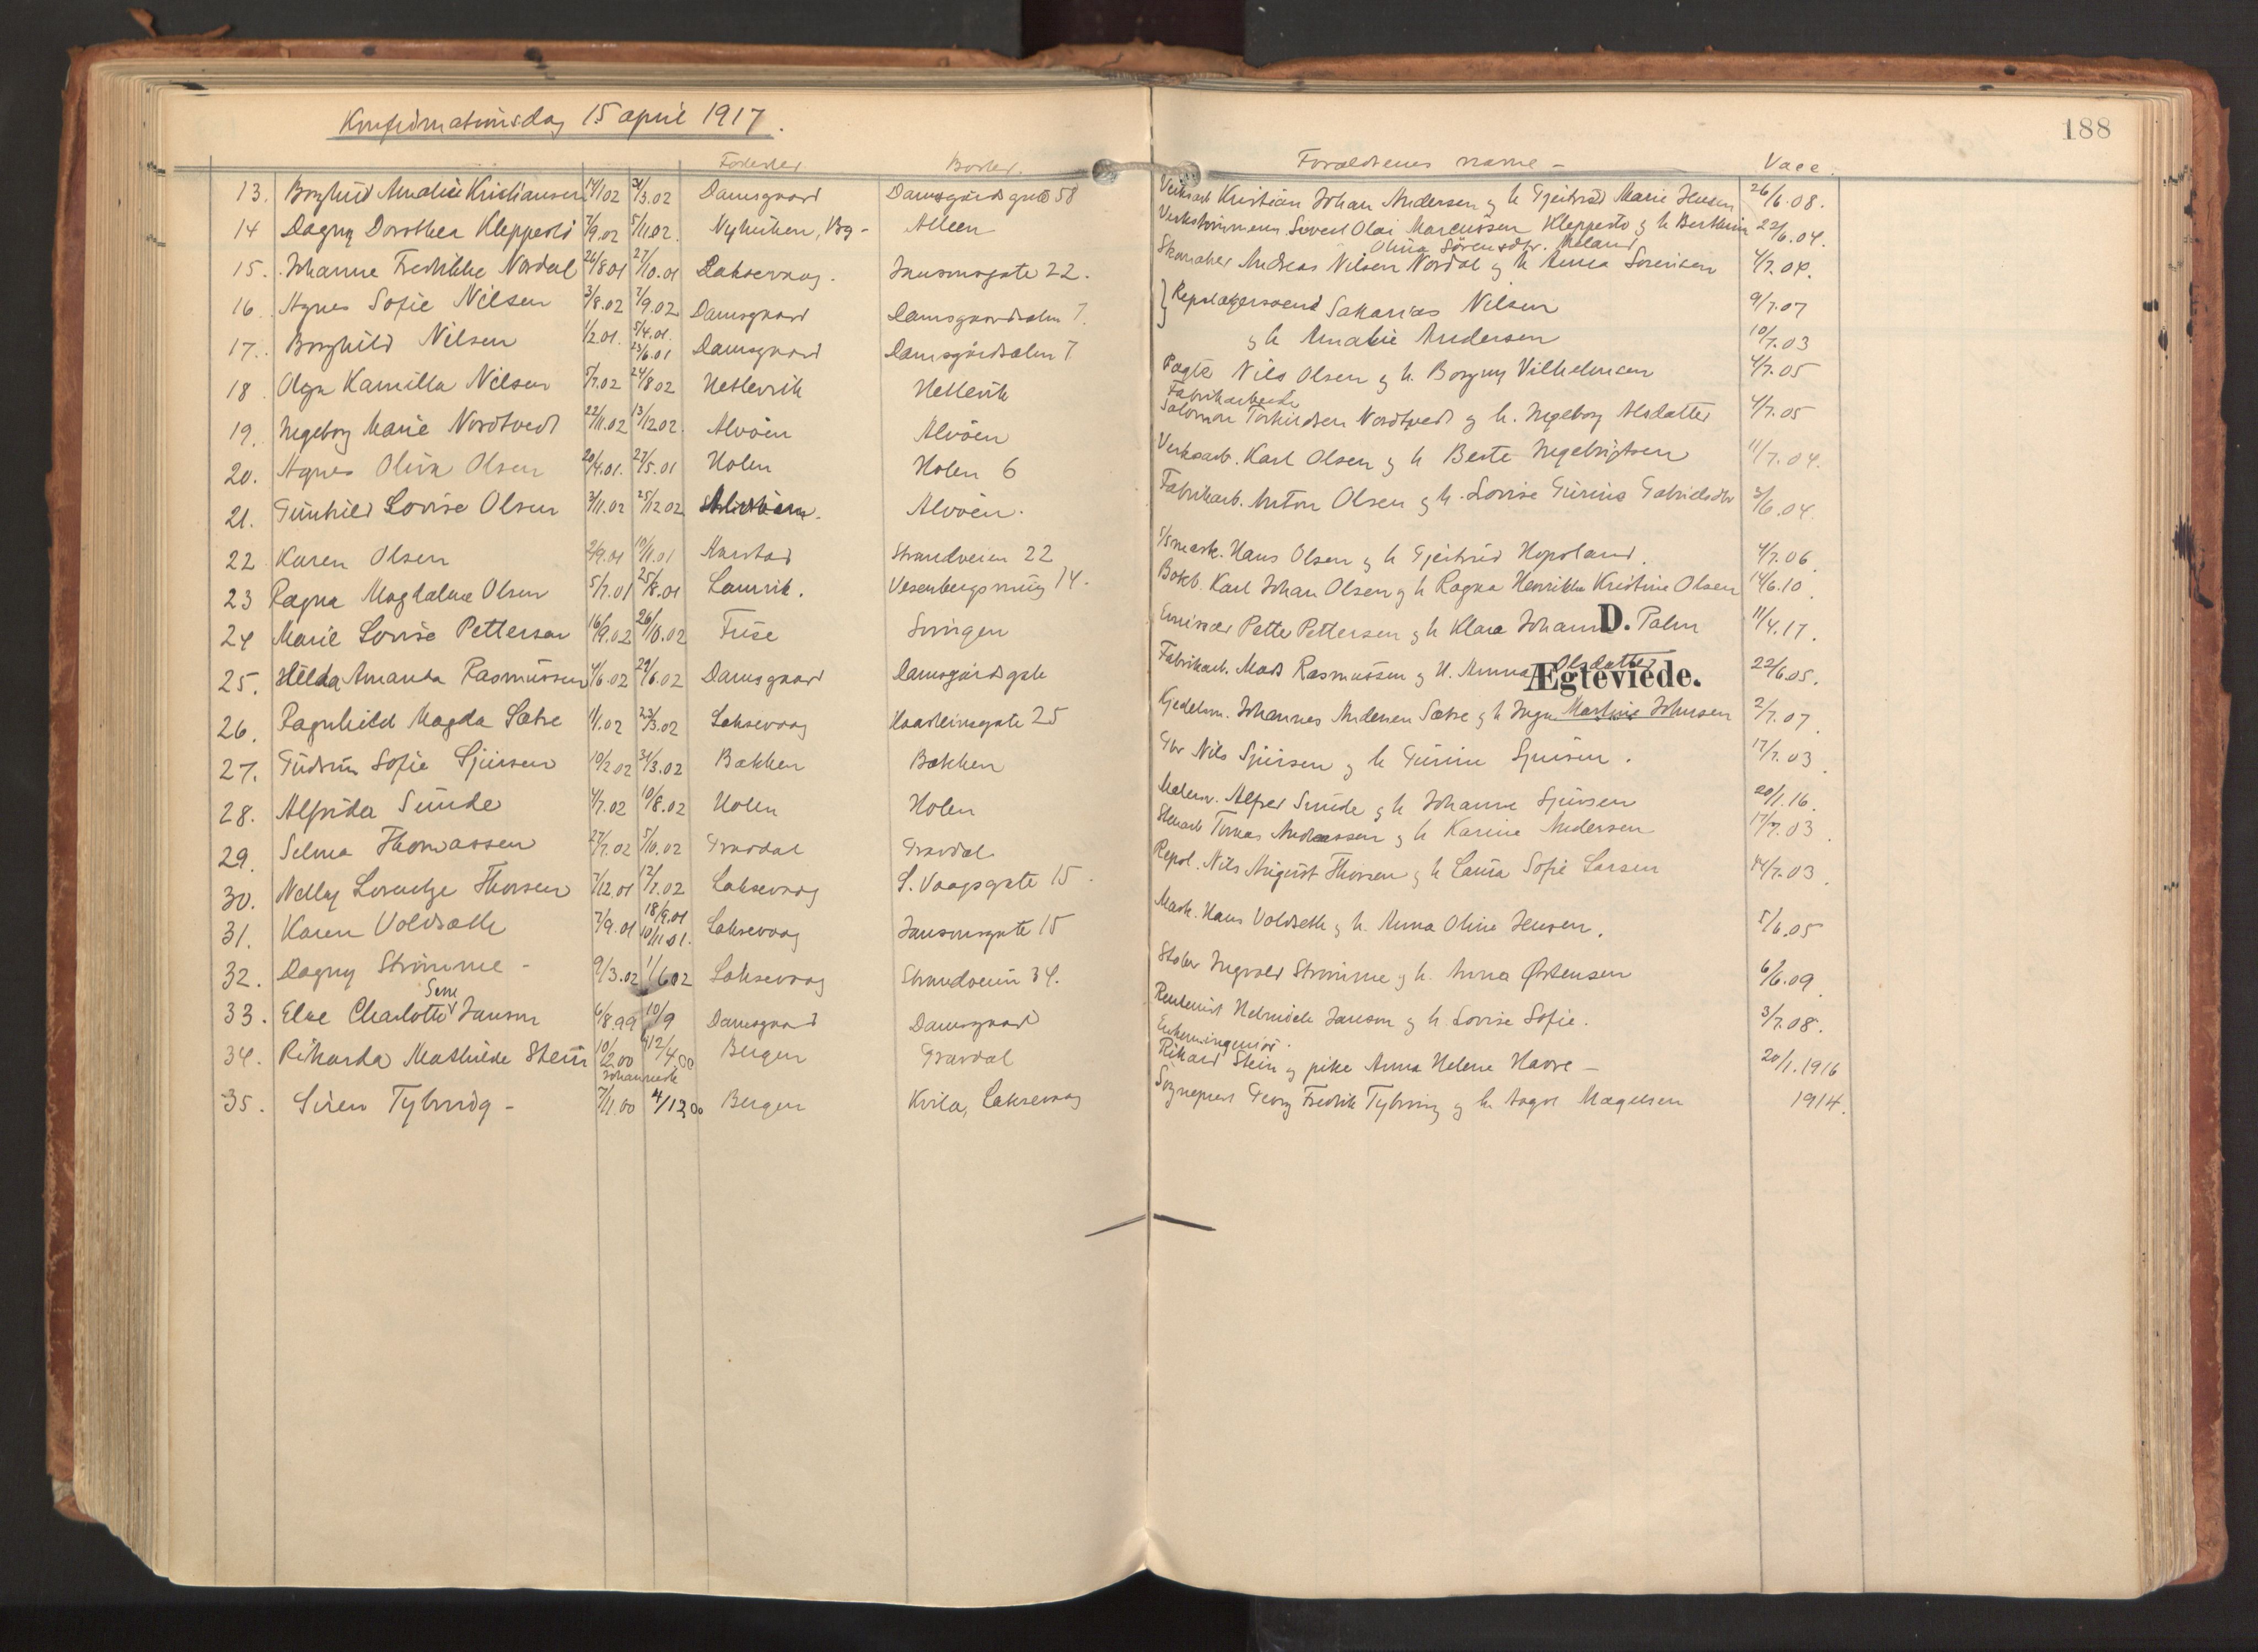 Konfirmationsdag 15 april 1917.
188
Fødested Bosted. Forældrenes navne - Vacc.
13. Borghild Amalie Kristiansen 14/1 02 31/3.02 Damsgaard Damsgårdsgate 58 Verksarb Kristian Johan Andersen g h Gjertrud Marie Jensen 26/6.08.
14 Dagny Dorothea Kleppestø 7/9.02 5/11.02. Nyhuken, Bg- Alleen Sivert Olai Marcussen Kleppestø g h Berthine 22/6.04.
Olina Sörensdtr. Meland
15. Johanne Fredrikke Nordal 26/8 01 27/10.01 Laksevaag. Jansonsgate 22. Skomaker Andreas Nilsen Nordal g h Anna Sorensen 4/7.08.
16. Agnes Sofie Nilsen 3/8.02 7/9.02 Damsgaard Damsgaardsalm 7. } Repslagersvend Sakarias Nilsen 9/7.07
17. Borghild Nilsen 1/2.01. 5/4.01. 23/6.01 Damsgaard Damsgårdsalm 7 g h Amalie Andersen 10/7.03
18 Olga Kamilla Nilsen 5/7.02 24/8 02 Hetlevik Hetlevik Nils Olsen g h. Borgny Vilhelmsen 4/7.05
Fabrikarbeider
19. Ingeborg Marie Nordtvedt 22/11.02 13/12 02. Alvøen Alvøen Salomon Torkildsen Nordtvedt g h. Ingeborg Alsdatter 4/7.05
20. Agnes Oliva Olsen 20/4.01. 27/5.01 Holen Holen 6 Verksarb. Karl Olsen g h Berte Ingebrigtsen 11/7.04.
21. Gunhild Lovise Olsen 3/11.02 25/12 02 Alvøen. Fabrikarb. Anton Olsen g h. Lovise Gurine Gabrielsdtr 3/6.04.
22 Karen Olsen 2/9.01 10/11.01 Harstad Strandveien 22 Hans Olsen g h Gjertrud Hopsland. 4/7.06.
23 Ragna Magdalene Olsen 5/7.01 25/8.01 Laurvik. Vesenbergsmug 14. Karl Johan Olsen g h Ragna Henrikke Kristine Olsen 14/6.10.
24 Marie Lovise Pettersen 16/9.02 26/10.02 Svingen Emissær Petter Pettersen g h Klara Johanne Palm 11/4.17.
D.
25. Hilda Amanda Rasmussen 4/6.02 29/6.02 Damsgaard Damsgårdsgate Fabrikarb. Mads Rasmussen g H. Anna Olsdatter 22/6.05.
Ægteviede.
26. Ragnhild Magda Sætre 1/1.02 23/3.02 Laksevaag Haarleinsgate 25 Kjedelsm. Johannes Andersen Sætre g h Inga Martine Johnsen 2/7.07.
27. Gudrun Sofie Sjursen 19/2.02 31/3.02 Bakken Bakken Gbr Nils Sjursen g h Gurine Sjursen. 17/7.03.
28. Alfrida Sunde 4/7.02 10/8.02 Holen Holen Malersv. Alfred Sunde g h Johanne Sjursen 20/1.16.
29. Selma Thomassen 27/7.02 5/10.02 Gravdal Gravdal Stenarb Tomas Andreassen g h Karine Andersen 17/7.03.
30. Nelly Lorentze Thorsen 7/12.01 12/1.02 Laksevaag L. Vaagsgate 15. Repsl. Nils August Thorsen g h Laura Sofie Larsen 14/7.03.
31. Karen Voldseth 7/9.01 18/9.01 10/11 01. Laksevaag Jansonsgate 15 Mask. Hans Voldseth g h. Anna Oline Jensen. 5/6.05
32. Dagny Strømme - 9/3.02 1/6 02 Laksevaag Strandveien 34. Ingvald Strømme g h. Anna Østensen 6/6.09.
33. Else Charlotte Sene Janson 6/8.99 10/9 Damsgaard Damsgaard Helmich Janson g h Lovise Sofie. 3/7.08.
34. Rikarda Mathilde Stein 10/2.00 12/4.00 Bergen Gravdal Rikard Stein g pike Anna Helene Havre - 20/1.1916
Johanneskk
35. Siren Tybring - 7/11 00 4/12.00 Bergen Kvila, Laksevaag Sogneprest Georg Fredrik Tybring g h Aagot Magelsen 1914.